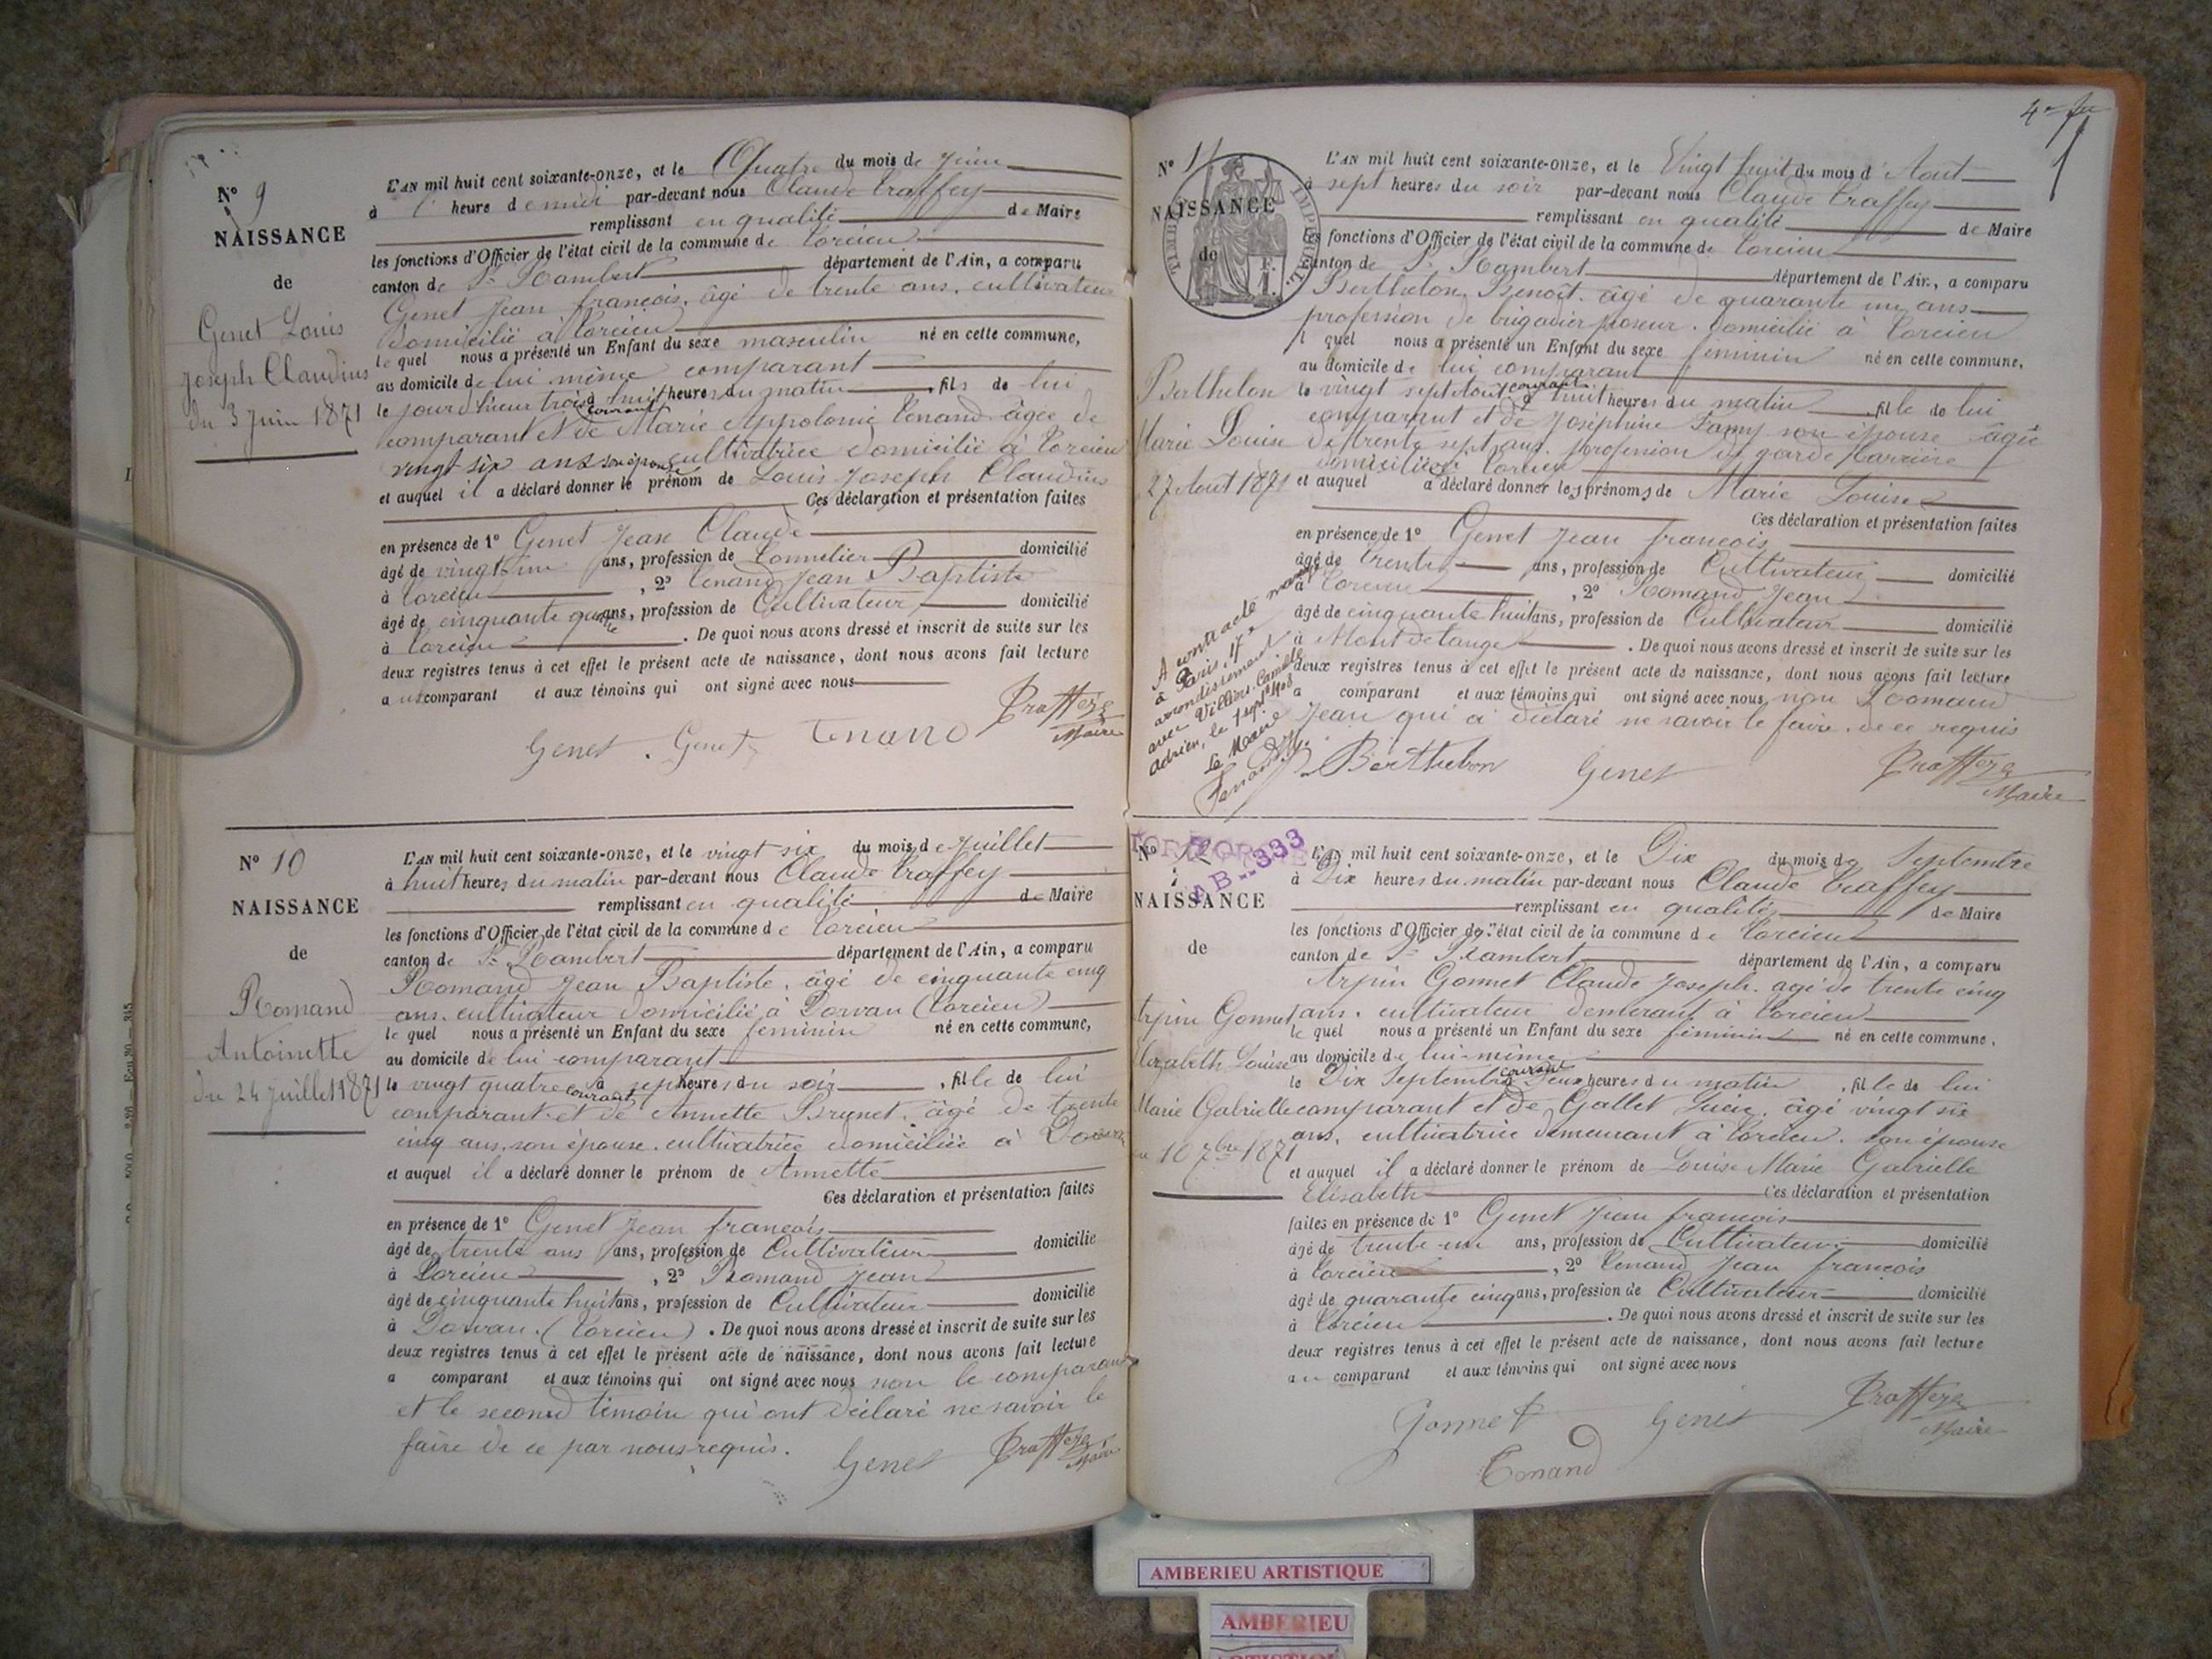 N° 9
NAISSANCE
de
Genet Louis
Joseph Claudius
du 3 Juin 1871
L'AN mil huit cent soixante-onze, et le Quatre du mois de Juin
à 1 heure de midi par-devant nous Claude Traffey
remplissant en qualité de Maire
les fonctions d'Officier de l'état civil de la commune de Torcieu
canton de St Rambert département de l'Ain, a comparu
Genet Jean françois, âgé de trente ans, cultivateur
domicilié à Torcieu
le quel nous a présenté un Enfant du sexe masculin né en cette commune,
au domicile de lui même comparant
le jour d'hier trois courant à huit heures du matin, fils de lui
comparant et de Marie Appolonie Tenand âgée de
vingt six ans son épouse cultivatrice domicilié à Torcieu
et auquel il a déclaré donner le prénom de Louis Joseph Claudius
Ces déclaration et présentation faites
en présence de 1° Genet Jean Claude
âgé de vingt un ans, profession de Tonnelier domicilié
à Torcieu, 2° Tenand Jean Baptiste
âgé de cinquante quatre ans, profession de Cultivateur domicilié
à Torcieu. De quoi nous avons dressé et inscrit de suite sur les
deux registres tenus à cet effet le présent acte de naissance, dont nous avons fait lecture
aux comparant et aux témoins qui ont signé avec nous
Genet . Genet Tenand Traffey
Maire
N° 10
NAISSANCE
de
Romand
Antoinette
du 24 Juillet 1871
L'AN mil huit cent soixante-onze, et le vingt six du mois de Juillet
à huit heures du matin par-devant nous Claude Traffey
remplissant en qualité de Maire
les fonctions d'Officier de l'état civil de la commune de Torcieu
canton de St Rambert département de l'Ain, a comparu
Romand Jean Baptiste, âgé de cinquante cinq
ans, cultivateur domicilié à Dorvan (Torcieu)
le quel nous a présenté un Enfant du sexe feminin né en cette commune,
au domicile de lui comparant
le vingt quatre courant à sept heures du soir, fille de lui
comparant et de Annette Brunet, âgé de trente
cinq ans, son épouse, cultivatrice domiciliée à Dorvan
et auquel il a déclaré donner le prénom de Annette
Ces déclaration et présentation faites
en présence de 1° Genet Jean françois
âgé de trente ans ans, profession de Cultivateur domicilié
à Torcieu, 2° Romand Jean
âgé de cinquante huit ans, profession de Cultivateur domicilié
à Dorvan. (Torcieu). De quoi nous avons dressé et inscrit de suite sur les
deux registres tenus à cet effet le présent acte de naissance, dont nous avons fait lecture
a comparant et aux témoins qui ont signé avec nous non le comparant
et le second témoin qui ont déclaré ne savoir le
faire de ce par nous requis.
Genet Traffey
Maire
4me
N° 11
TIMBRE IMPERIAL
NAISSANCE
de
Berthelon
Marie Louise
27 Aout 1871
L'AN mil huit cent soixante-onze, et le Vingt huit du mois d'Aout
à sept heures du soir par-devant nous Claude Traffey
remplissant en qualité de Maire
les fonctions d'Officier de l'état civil de la commune de Torcieu
canton de St Rambert département de l'Ain, a comparu
Berthelon Benoît, âgé de quarante un ans
profession de brigadier poseur, domicilié à Torcieu
l quel nous a présenté un Enfant du sexe féminin né en cette commune,
au domicile de lui comparant
le vingt sept Aout courant à huit heures du matin, fille de lui
comparant et de Joséphine Famy son épouse âgée
de trente sept ans, profession de garde barrière
domiciliée à Torcieu
et auquel a déclaré donner les prénoms de Marie Louise
Ces déclaration et présentation faites
en présence de 1° Genet Jean françois
âgé de trente ans, profession de Cultivateur domicilié
à Torcieu, 2° Romand Jean
âgé de cinquante huit ans, profession de Cultivateur domicilié
à Mont de Lange. De quoi nous avons dressé et inscrit de suite sur les
deux registres tenus à cet effet le présent acte de naissance, dont nous avons fait lecture
a comparant et aux témoins qui ont signé avec nous, non Romand
Jean qui a déclaré ne savoir le faire, de ce requis
Berthelon Genet Traffey
Maire
A contracté mariage
à Paris, 17e
arrondissement
avec Villiers Camille
Adrien, le 1er Sept.
Le Maire
N°
AB..333
NAISSANCE
de
Arpin Gonnet
Elizabeth Louise
Marie Gabrielle
10 7bre 1871
L'AN mil huit cent soixante-onze, et le Dix du mois de Septembre
à Dix heures du matin par-devant nous Claude Traffey
remplissant en qualité de Maire
les fonctions d'Officier de l'état civil de la commune de Torcieu
canton de St Rambert département de l'Ain, a comparu
Arpin Gonnet Claude Joseph, agé de trente cinq
ans, cultivateur demeurant à Torcieu
le quel nous a présenté un Enfant du sexe féminin né en cette commune,
au domicile de lui-même
le Dix Septembre courant Deux heures du matin, fille de lui
comparant et de Gallet Lucie, âgé vingt six
ans, cultivatrice demeurant à Torcieu, son épouse
et auquel il a déclaré donner le prénom de Louise Marie Gabrielle
Elisabeth Ces déclaration et présentation
faites en présence de 1° Genet Jean françois
âgé de trente un ans, profession de Cultivateur domicilié
à Torcieu, 2° Tenand Jean françois
âgé de quarante cinq ans, profession de Cultivateur domicilié
à Torcieu. De quoi nous avons dressé et inscrit de suite sur les
deux registres tenus à cet effet le présent acte de naissance, dont nous avons fait lecture
au comparant et aux témoins qui ont signé avec nous
Gonnet Genet Traffey
Maire
Tenand
AMBERIEU ARTISTIQUE
AMBERIEU
ARTISTIQUE